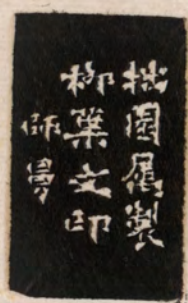 拙園屬製
柳葉文印
師曼